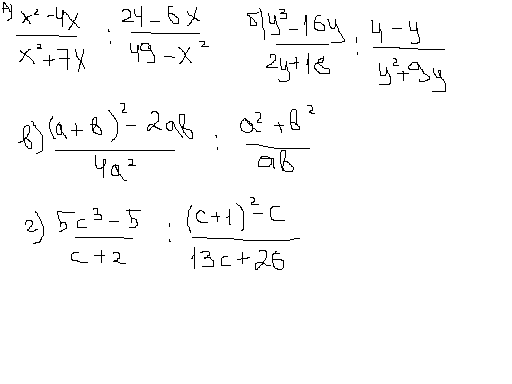 А) (x² - 4x)/(x² + 7x) : (24 - 6x)/(49 - x²) б) (y³ - 16y)/(2y + 18) : (4 - y)/(y² + 9y)
в) ((a + b)² - 2ab)/(4a²) : (a² + b²)/(ab)
г) (5c³ - 5)/(c + 2) : ((c + 1)² - c)/(13c + 26)